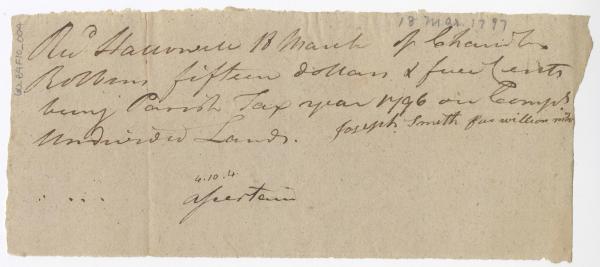 18 Mar. 1797
Recd Hallowell 18 March of Chandlr
Robbins fifteen dollars & five Cents
being Parish Tax year 1796 on Compys
Undivided Lands. Joseph Smith for william
4.10.4